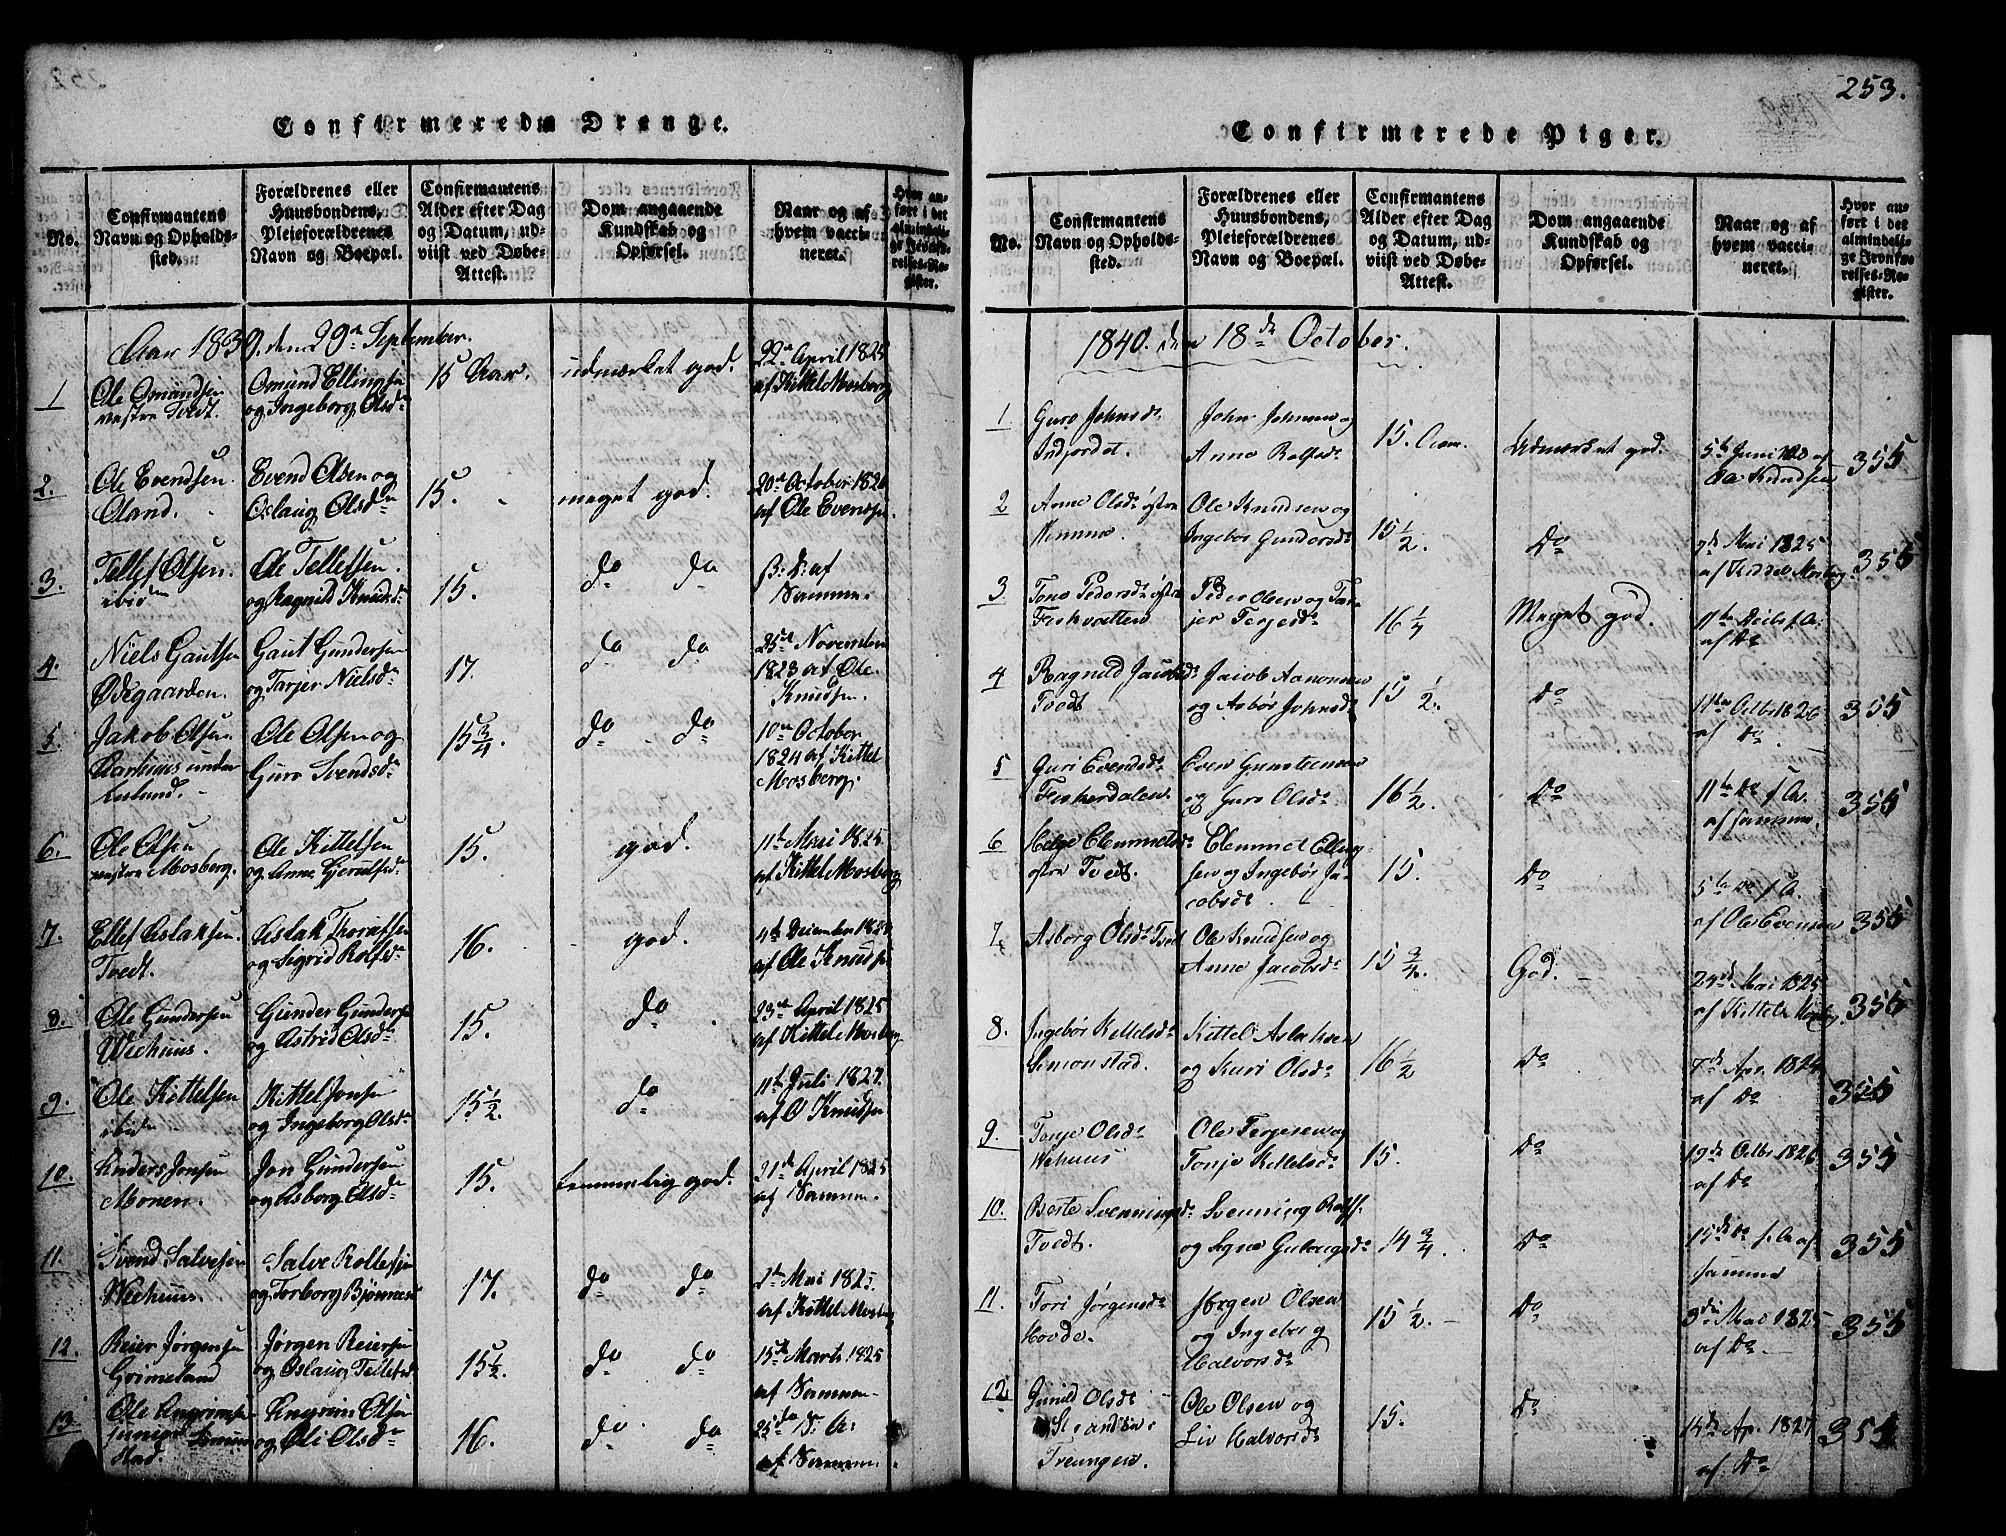 Confirmerede Drenge.
No.
Confirmantens
Navn og Opholds-
sted.
Forældrenes eller
Huusbondens,
Pleieforældrenes
Navn og Boepæl.
Confirmantens
Alder efter Dag
og Datum, ud-
viist ved Døbe-
Attest.
Dom angaaende
Kundskab og
Opførsel.
Naar og af
hvem vacci-
neret.
Hvor an-
ført i det
almindeli-
ge Jevnfø-
relses-Re-
gister.
Aar 1839, den 29n September.
1
Ole Omundsen
vestre Tvedt.
Omund Ellingsn
og Ingeborg Olsdr
15 Aar.
udmærket god.
22n April 1825
af Kittel Mosberg
2.
Ole Evendsen
Oland.
Evend Olsen og
Oslaug Olsdr
15.
meget god.
20n October 1826
af Ole Evensn.
3.
Tellef Olsen.
ibid
Ole Tellefsen.
og Ragnild Knudsdr
15.
do do
af
Samme.
4.
Niels Gautsen
Ødegaarden.
Gaut Gundersen
og Tarjer Nielsdr
17.
do do
25n November
1823 af Ole
Knudsen.
5.
Jakob Olsen
Aarhuus under
Ole Olsen og
Guro Svendsdr
15 3/4.
do do
10n October
1824 af Kittel
Mosberg.
6.
Ole Olsen
vestre Mosberg.
Ole Kittelsen
og Anne Gjerulfsd.
15.
god.
11te Mai 1825
af Kittel Mosberg
7.
Ellef Aslaksen.
Tvedt.
Aslak
og Sigrid Rolfsdr
16.
god.
4de December
af Ole Knudsn
8.
Ole Gundersen
Weehuus.
Gunder Gundersen
og Astrid Olsdr
15.
do
23n April 1825
af Kittel Mosberg
9.
Ole Kittelsen
ibid
Kittel Jonsen
og Ingeborg Olsdr
15 1/2.
do
11te Juli 1827.
af O Knudsen
10.
Anders Jonsen
Monen.
Jon Gundersen
og Asborg Olsdr
15.
temmelig god.
21de April 1825
af Samme.
11.
Svend Salvesen
Weehuus.
Salve Rollefsen
og Torborg
17.
do do
Mai 1825
af Kittel Mosberg
12.
Reier Jørgensen
Grimeland
Jørgen Reiersen
og Oslaug Tellefsd
15 1/2.
do do
15de Marts 1825
af Samme
13.
Ole Angrimsen
Simon
stad.
Angrim Olsen
og Olsdr
16.
do do
25de
af Samme
253.
Confirmerede Piger.
No.
Confirmantens
Navn og Opholds-
sted.
Forældrenes eller
Huusbondens,
Pleieforældrenes
Navn og Boepæl.
Confirmantens
Alder efter Dag
og Datum, ud-
viist ved Døbe-
Attest.
Dom angaaende
Kundskab og
Opførsel.
Naar og af
hvem vacci-
neret.
Hvor an-
ført i det
almindeli-
ge Jevnfø-
relses-Re-
gister.
1840. den 18de October.
1
Guro Johnsdr
John Johnsen og
Anne Rolfsdr
15. Aar.
Udmærket god.
5te Juni af
Ole Knudsen
355
2
Anne Olsdr østre
Nemmo.
Ole Knudsen og
Ingebor Gundersdr
15 1/2.
Do
7de Mai 1825
af Kiddel Mosberg.
355
3
Tone Pedersdr østre
Fiskvatten
Peder Olsen og Tar-
jer Terjesdr
16 1/4
Meget god.
af Do
4
Ragnild Jacobsdr
Tvedt
Jacob Aanonsen
og Asbør Johnsdr
15 1/2.
Do
11te Octbr 1826
af Do
355
5
Guri Evendsdr
Fiskerdalen.
Even Gunsteensen
og Guro Olsdr
16 1/2.
Do
11te Do s. A.
af samme
355
6
Helge Clemmetsdr
østre Tvedt.
Clemmet Elling-
sen og Ingebør Ja-
cobsdr
15.
Do
5te Do s. A.
af Ole Evensen
355
7.
Asborg Olsdr Tvedt
Ole Knudsen og
Anne Jacobsdr
15 3/4.
God.
24de Mai 1825
af Kittel Mosberg.
355
8.
Ingebør Kittelsdr
Simonstad.
Kittel Aslaksen
og Kari Olsdr
16 1/2
Do
7de Apr. 1824
af Do
355
9.
Tonje Olsdr
Wehuus
Ole Terjesen og
Tonje Kittelsdr
15.
Do
19de Octbr 1826
af Do
355
10.
Berte Svenningsdr
Tvedt.
Svenning Rolfs.
og Signe Gulaugsdr
14 3/4.
Do
15de Do s. A af
samme
355
11.
Tori Jørgensdr
Hovde.
Jørgen Olsen
og Ingeborg
Halvorsdr
15 1/2.
Do
3die Mai 1825
af Do
355
12
Gunild Olsdr
Treungen.
Ole Olsen og
Liv Halvorsdr
15.
Do
14de Ap. 1827
af Do
355